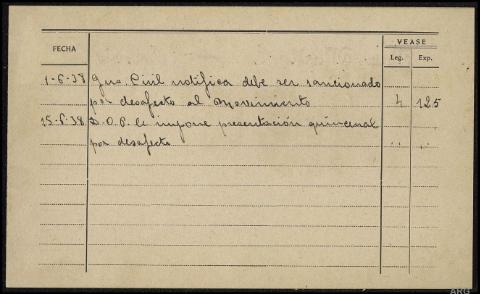 FECHA
VEASE
Leg. Exp.
1-6-38 Gno Civil notifica debe ser sancionado
por desafecto al Movimiento 4 125
15-6-38 D.O.P. le impone presentación quincenal
por desafecto " "
ARG